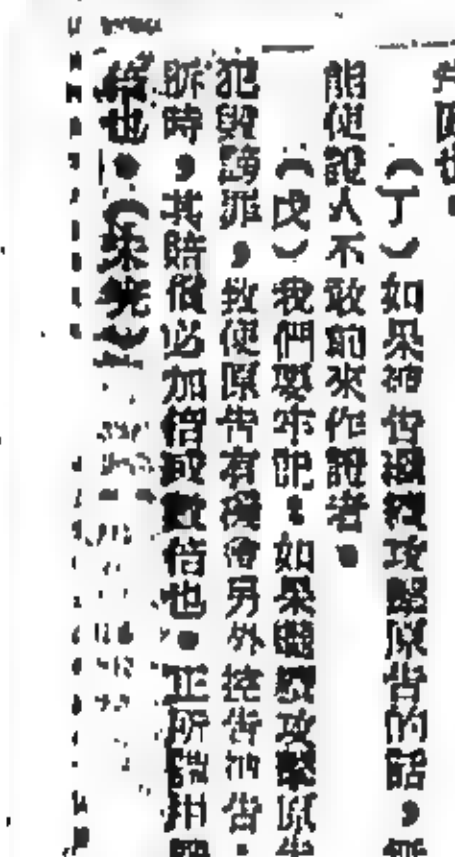 件因也。
（丁）如果被告繼續攻擊原告的話，無
能使證人不敢前來作證者。
（戊）我們要牢記：如果繼續攻擊原告
犯與誹，致使原告有機會另外控告被告，
訴時，其賠償必加倍或數倍也。正所謂
也。（未完）